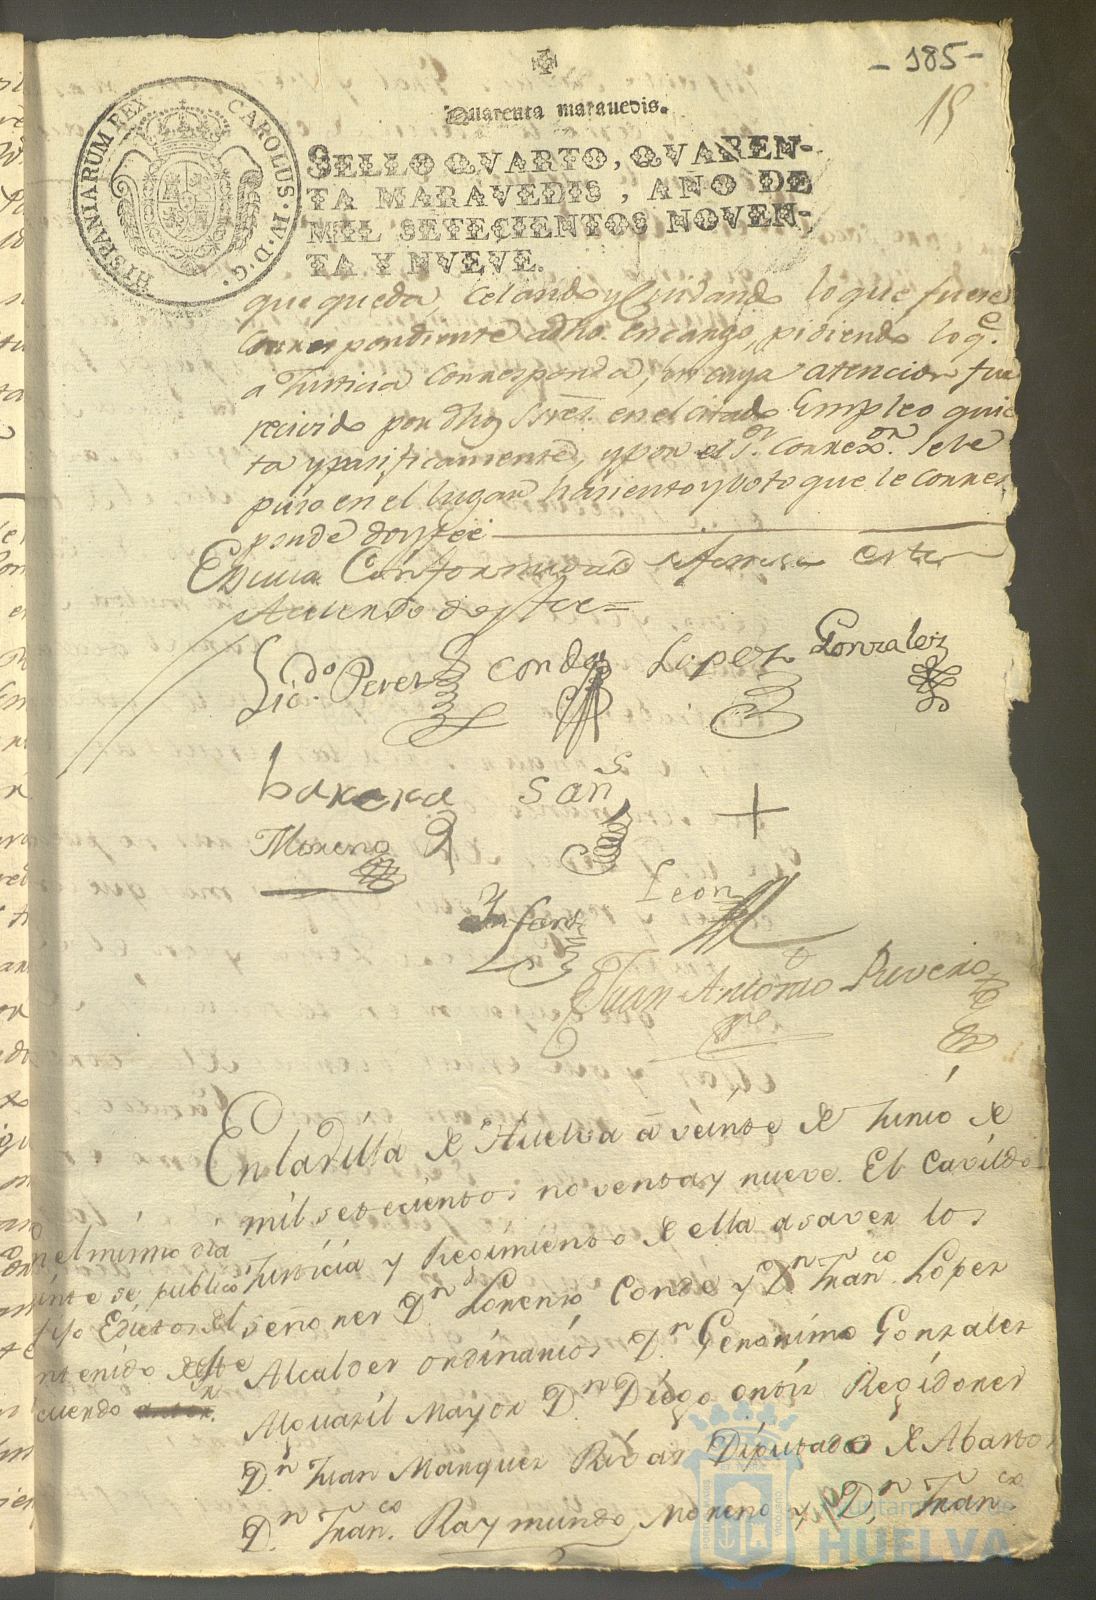 - 185 -
15
Quarenta marauedis.
HISPANIARUM REX CAROLUS · IV · D · G ·
SELLO QVARTO, QVAREN-
TA MARAVEDIS, AÑO DE
MIL SETECIENTOS NOVEN-
TA Y NVEVE.
que queda, Celando y Cuidando lo que fuere
Correspondiente a dho. encargo, pidiendo lo q.e
a Justicia Corresponda, en cuya atencion fue
recivido por dhos Sres. en el citado Empleo quie
ta y pasificamente, y por el S.or Correx.or se le
puso en el lugar hasiento y voto que le corres
ponde doy fee
En cuia Conformidad se firma este
Acuerdo doy fee =
Licdo. Perez Conde Lopez Gonzalez
barera San s +
Moreno
Leon
Infante
Juan Antonio Rivero
En la Villa de Huelva a veinte de Junio de
mil setecientos noventa y nueve. El Cavildo
Justicia y Regimiento de ella asaver los
señores D.n Lorenzo Conde y D.n Fran.co Lopez
Alcaldes ordinarios D.n Geronimo Gonzalez
Alguasil Mayor D.n Diego ortiz Regidores
D.n Juan Marquez Rivas Diputados de Abastos
D.n Fran.co Raymundo Moreno y D.n Fran.co
n el mismo dia
inte se publico
fijo Edictos del
ntenido de este
cuerdo
Ayuntamiento de
HUELVA